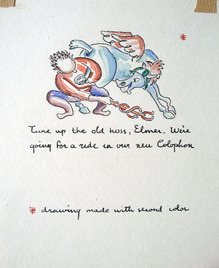 Tune up the old hoss, Elmer, We're
going for a ride in our new Colophon
* drawing made with second color